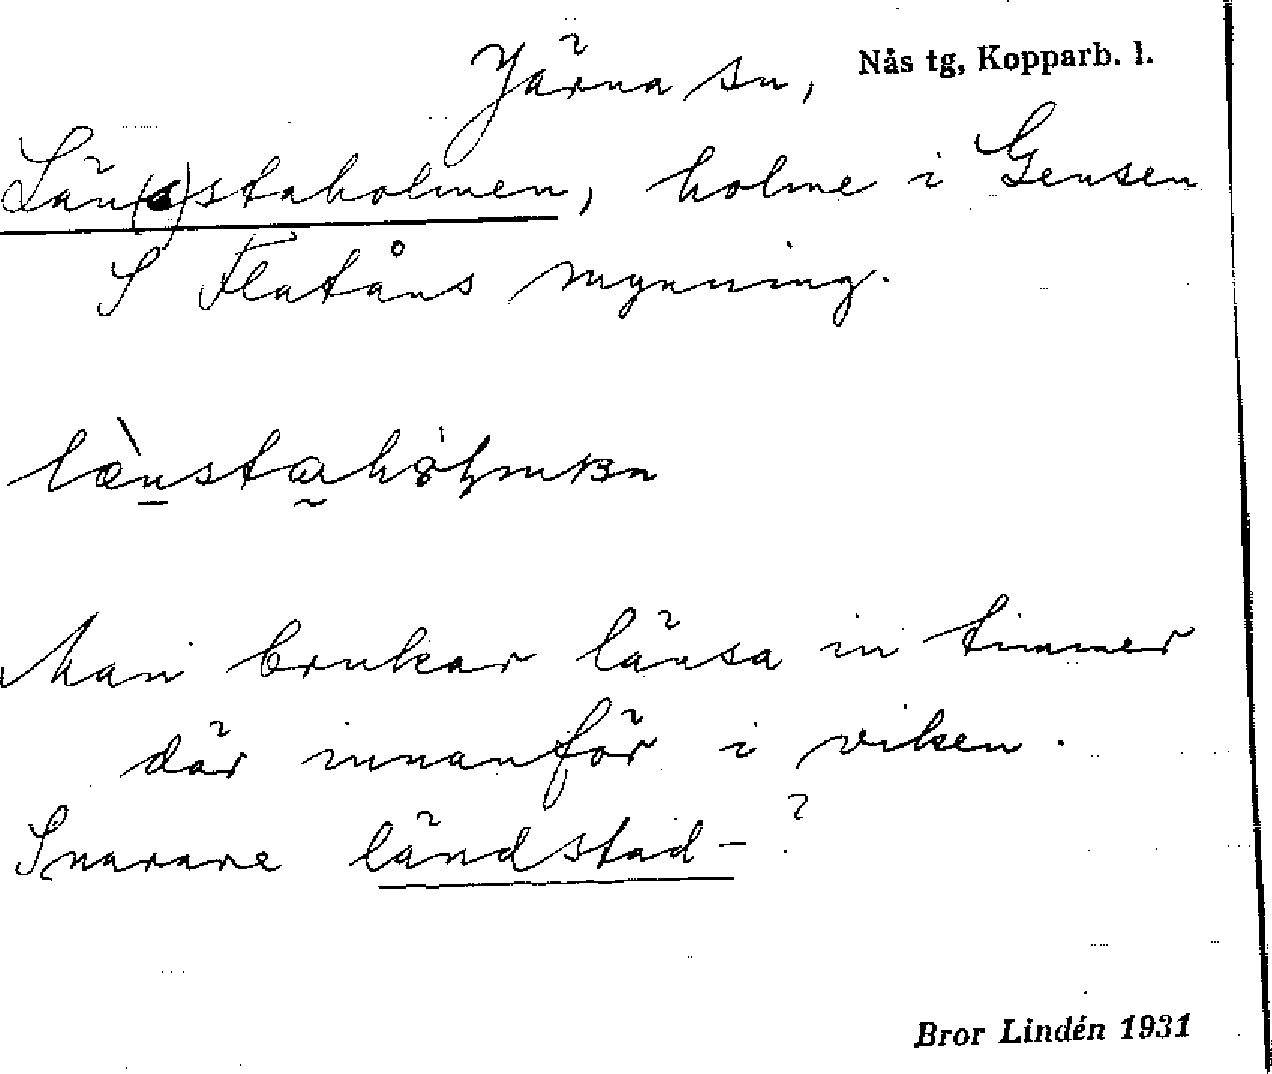 Järna sn, Nås tg, Kopparb. l.
Län(s)staholmen, holme i Gensen
S Flatåns mynning.
Man brukar länsa in timmer
där innanför i viken.
Snarare ländstad-?
Bror Lindén 1931